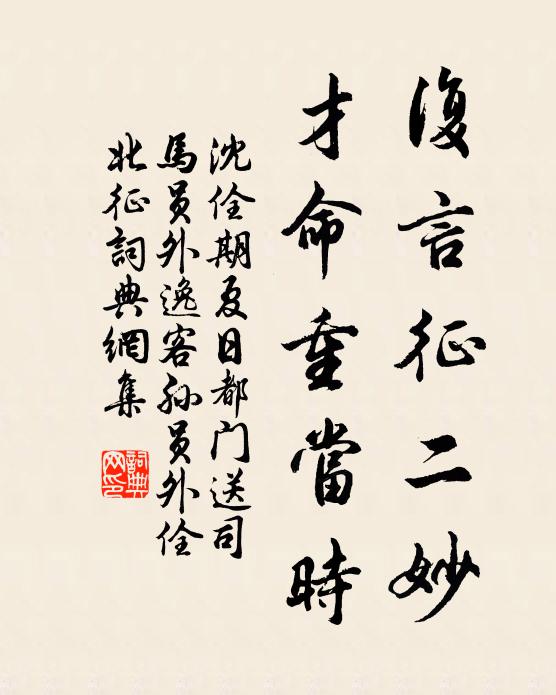 復言征二妙
才命重當時
沈佺期夏日都门送司
馬员外逸客孙员外佺
北征詞典網集
詞典网印